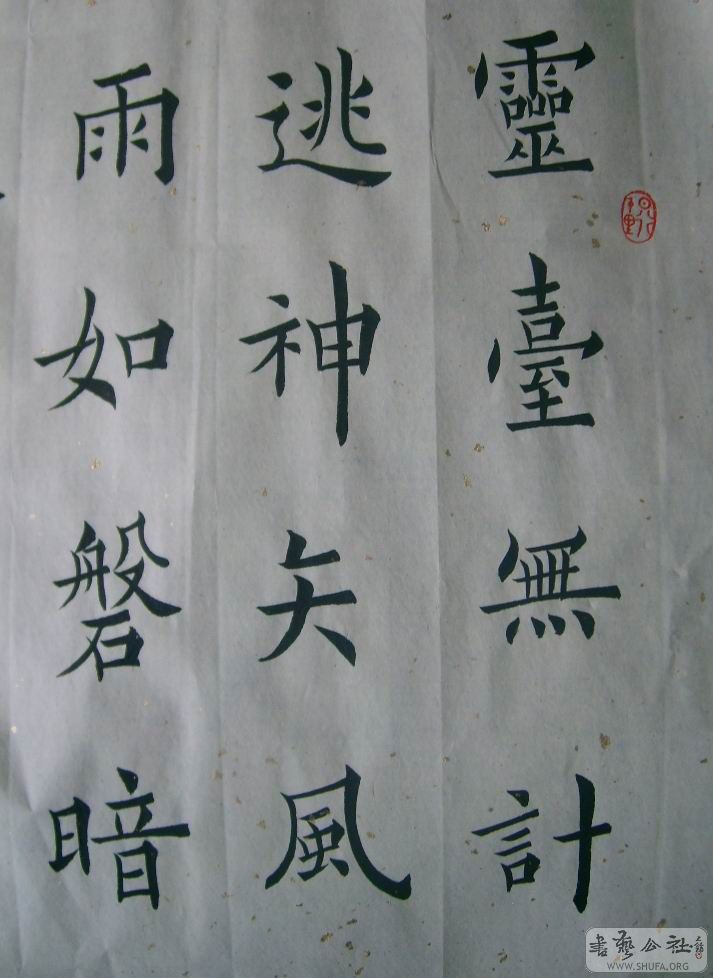 靈臺無計
逃神矢風
雨如磐暗
書藝公社
WWW.SHUFA.ORG